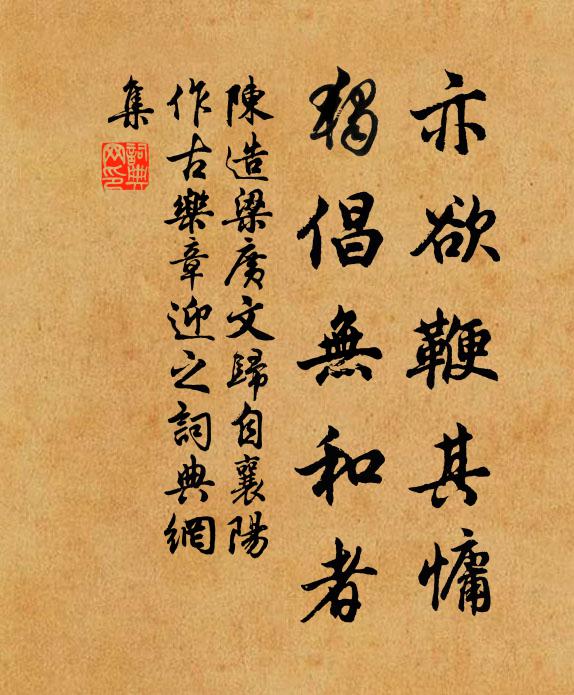 亦欲鞭其慵
獨倡無和者
陳造梁廣文歸自襄陽
作古樂章迎之詞典網
集
詞典網印